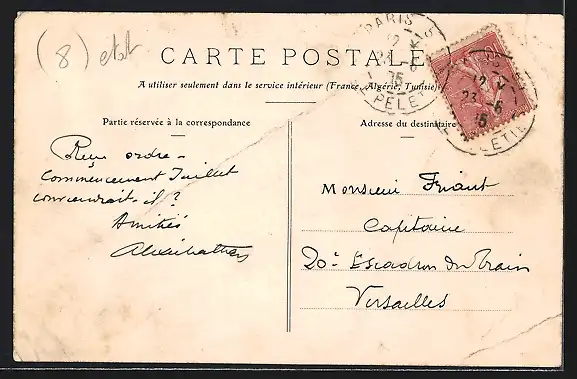 (8) etat
CARTE POSTALE
A utiliser seulement dans le service intérieur (France, Algérie, Tunisie)
PARIS
R. LAPELETIER
Partie réservée à la correspondance
Adresse du destinataire
Reçu ordre –
Commencement Juillet
conviendrait-il ?
Amitiés
Monsieur Friant
Capitaine
20e Escadron du Train
Versailles